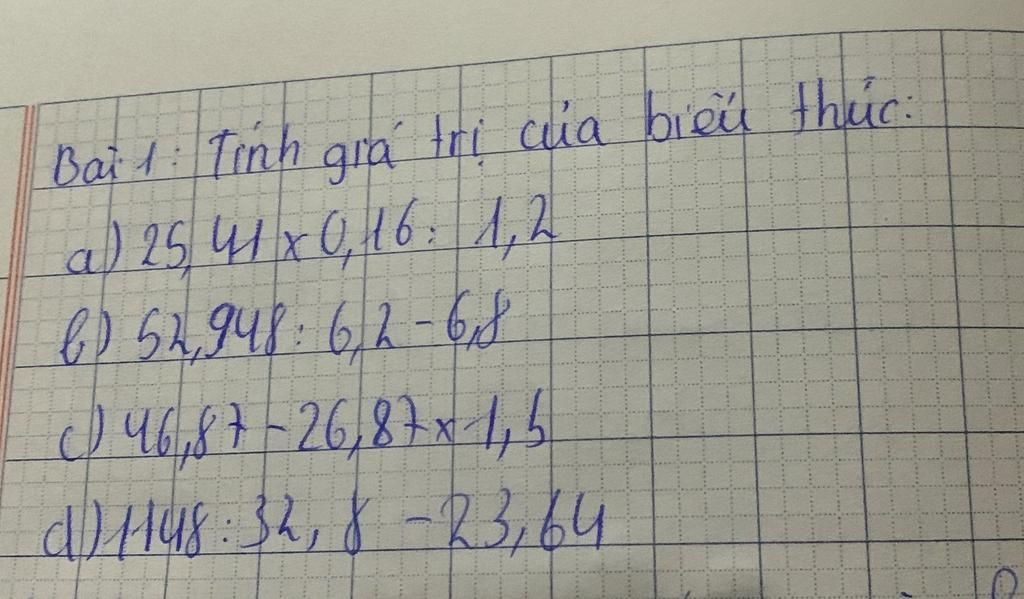 Bài 1: Tính giá trị của biểu thức:
a) 25,41 x 0,16 : 1,2
b) 52,948 : 6,2 - 6,8
c) 46,87 - 26,87 x 1,5
d) 1148 : 32,8 - 23,64